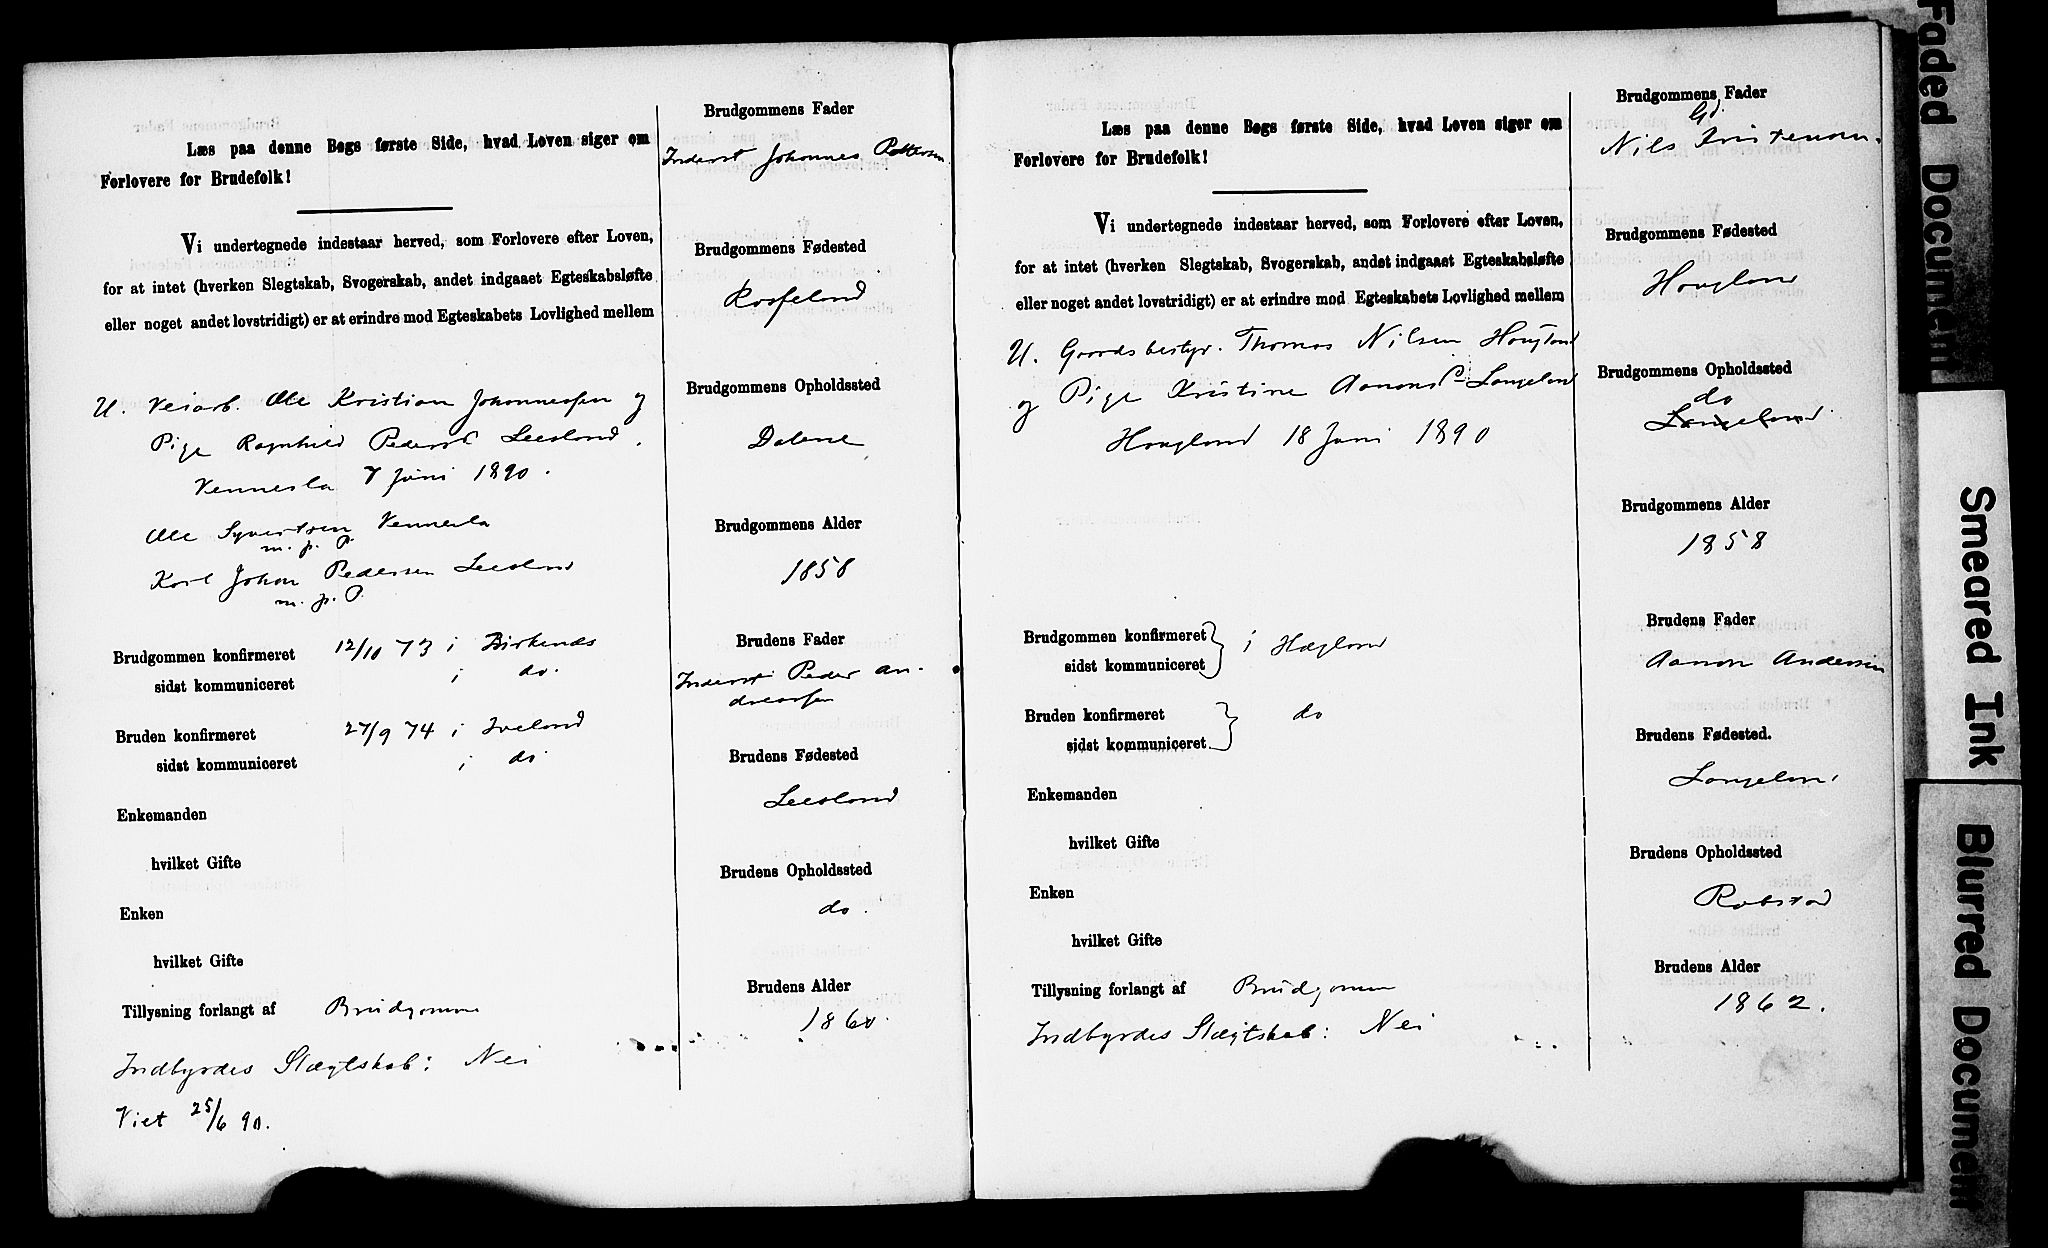 Læs paa denne Bogs første Side, hvad Loven siger om
Forlovere for Brudefolk!
Vi undertegnede indestaar herved, som Forlovere efter Loven,
for at intet (hverken Slegtskab, Svogerskab, andet indgaaet Egteskabsløfte
eller noget andet lovstridigt) er at erindre mod Egteskabets Lovlighed mellem
U. Veiarb. Ole Kristian Johannessen og
Pige Ragnhild Pedersd Leesland.
Vennesla 7 Juni 1890.
Ole Syvertsen Vennesla
m. p. P.
Karl Johan Pedersen Leesland
m. p. P.
Brudgommen konfirmeret 12/10 73 i Birkenes
sidst kommuniceret i do.
Bruden konfirmeret 27/9 74 i Iveland
sidst kommuniceret i do
Enkemanden
hvilket Gifte
Enken
hvilket Gifte
Tillysning forlangt af Brudgomme
Indbyrdes Slægtskab: Nei
Viet 25/6 90.
Brudgommens Fader
Inderst Johannes Pettersen
Brudgommens Fødested
Rosseland
Brudgommens Opholdssted
Dalene
Brudgommens Alder
1858
Brudens Fader
Inderst Peder An-
dreassen
Brudens Fødested
Leesland
Brudens Opholdssted
do.
Brudens Alder
1860.
Læs paa denne Bogs første Side, hvad Loven siger om
Forlovere for Brudefolk!
Vi undertegnede indestaar herved, som Forlovere efter Loven,
for at intet (hverken Slegtskab, Svogerskab, andet indgaaet Egteskabsløfte
eller noget andet lovstridigt) er at erindre mod Egteskabets Lovlighed mellem
U. Gaardsbestyr. Thomas Nilsen Haugland
og Pige Kristine Aanonsd Langeland
Haugland 18 Juni 1890
Brudgommen konfirmeret } i Hægland
sidst kommuniceret
Bruden konfirmeret } do
sidst kommuniceret
Enkemanden
hvilket Gifte
Enken
hvilket Gifte
Tillysning forlangt af Brudgomme
Indbyrdes Slægtskab: Nei
Brudgommens Fader
Nils
Brudgommens Fødested
Haugland
Brudgommens Opholdssted
do
Langeland
Brudgommens Alder
1858
Brudens Fader
Aanon Andersen
Brudens Fødested.
Langeland
Brudens Opholdssted
Robstad
Brudens Alder
1862.
Faded Document
Smeared Ink
Blurred Document